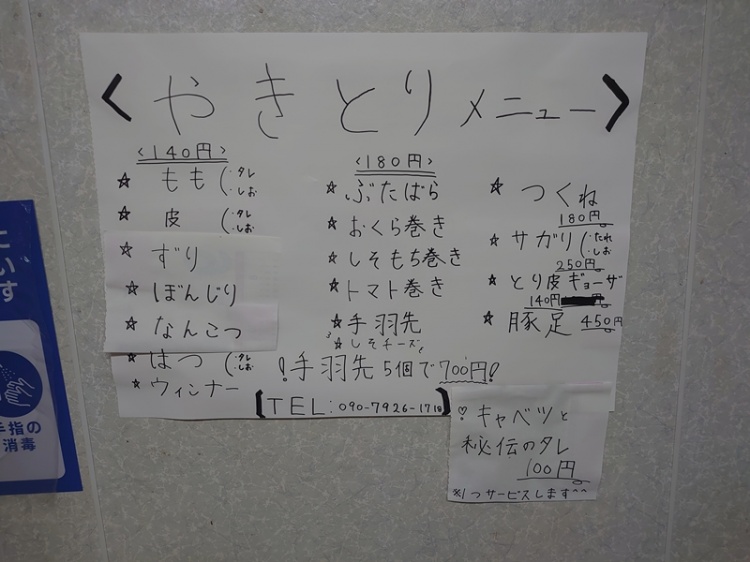 < やきとり メニュー >
<140円>
☆ もも (・タレ ・しお
☆ 皮 (・タレ ・しお
☆ ずり
☆ ぼんじり
☆ なんこつ
☆ はつ (・タレ ・しお
☆ ウィンナー
<180円>
☆ ぶたばら
☆ おくら巻き
☆ しそもち巻き
☆ トマト巻き
☆ 手羽先
☆ しそチーズ
☆ つくね
180円
☆ サガリ (・たれ ・しお
250円
☆ とり皮ギョーザ
140円
☆ 豚足 450円
! 手羽先 5個で700円!
[TEL: 090-7926-1718]
♡ キャベツと
秘伝のタレ
100円
※1つサービスします^^
手指の
消毒